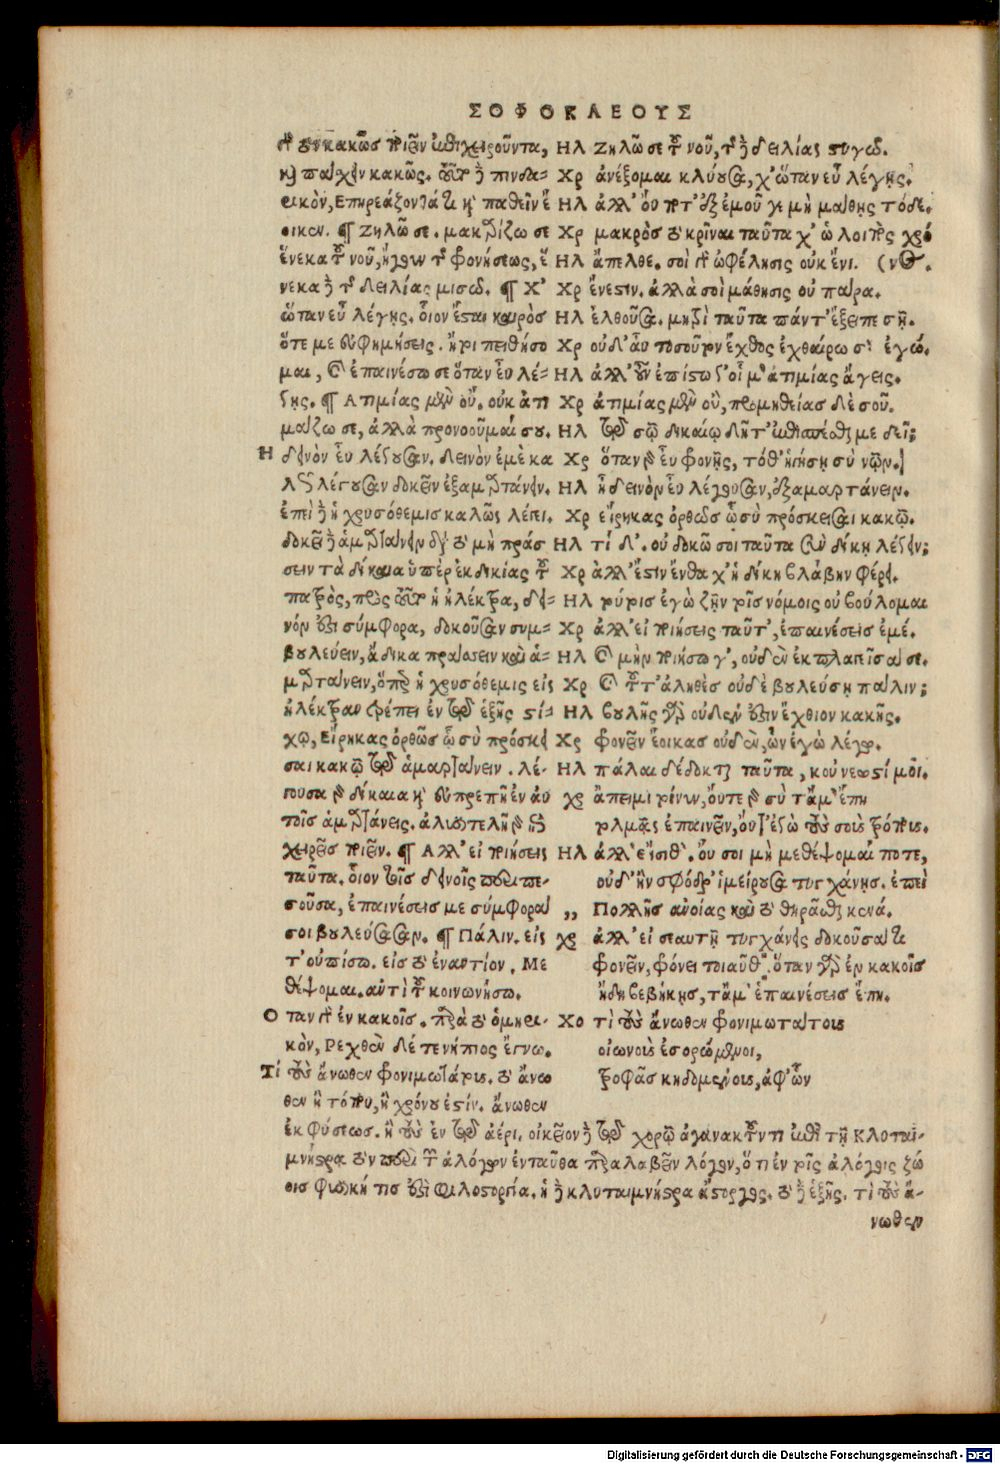 ΣΟΦΟΚΛΕΟΥΣ
τὸ κακῶς ποιεῖν ἐπιχειροῦντα,
καὶ πάσχειν κακῶς. τοῦτο δὲ πινδα-
ρικὸν, Επηρεάζοντά τι καὶ παθεῖν ἔ
οικεν. ¶ Ζηλῶ σε. μακαρίζω σε
ἕνεκα τοῦ νοῦ, ἤγουν τῆς φρονήσεως, ἕ
νεκα δὲ τῆς δειλίας μισῶ. ¶ Χ'
ὥταν εὖ λέγῃς. οἷον ἔσται καιρὸς
ὅτε με εὐφημήσεις. ἤτοι πειθήσο
μαι, καὶ ἐπαινέσω σε ὅταν εὖ λέ-
γῃς. ¶ Ατιμίας μὲν οὔ. οὐκ ἀτι
μάζω σε, ἀλλὰ προνοοῦμαί σου.
Η δεινὸν εὖ λέγουσαν. δεινὸν ἐμὲ κα
λῶς λέγουσαν δοκεῖν ἐξαμαρτάνειν.
ἐπεὶ δὲ ἡ χρυσόθεμις καλῶς λέγει.
δοκεῖ δὲ ἁμαρτάνειν διὰ τὸ μὴ πράσ
σειν τὰ δίκαια ὑπὲρ ἐκδικίας τοῦ
πατρὸς, πρὸς τοῦτο ἡ ἠλέκτρα, δει-
νόν ἐστι σύμφορα, δοκοῦσαν συμ-
βουλεύειν, ἄδικα πράσσειν καὶ ἁ-
μαρτάνειν, ὅπερ ἡ χρυσόθεμις εἰς
ἠλέκτραν τρέπει ἐν τῷ ἑξῆς στί-
χῳ, Εἴρηκας ὀρθῶς ᾧ σὺ πρόσκει
σαι κακῷ τῷ ἁμαρτάνειν. λέ-
γουσα γὰρ δίκαια καὶ εὐπρεπῆ ἐν αὐ
τοῖς ἁμαρτάνεις. ἀλυσιτελῆ γὰρ ἐγ
χειρεῖς ποιεῖν. ¶ Αλλ' εἰ ποιήσεις
ταῦτα. οἷον τοῖς δεινοῖς περιπε-
σοῦσα, ἐπαινέσεις με σύμφορά
σοι βουλεύσασαν. ¶ Πάλιν. εἰς
τ'οὐπίσω. εἰς τὸ ἐναντίον. Με
θέψομαι. αντὶ τοῦ κοινωνήσω.
Ο ταν γὰρ ἐν κακοῖς. παρὰ τὸ ὁμηρι-
κὸν, Ρεχθὲν δέ τε νήπιος ἔγνω.
Τί τοὺς ἄνωθεν φρονιμωτάτους. τὸ ἄνω
θεν ἢ τόπου, ἢ χρόνου ἐστίν. ἄνωθεν
Ηλ Ζηλῶ σε τοῦ νοῦ, τῆς δὲ δειλίας στυγῶ.
Χρ ἀνέξομαι κλύουσα, χ' ὥταν εὖ λέγῃς.
Ηλ ἀλλ' οὔ ποτ' ἐξ ἐμοῦ γε μὴ μάθῃς τόδε.
Χρ μακρὸς τὸ κρῖναι ταῦτα χ' ὡ λοιπὸς χρό
Ηλ ἄπελθε. σοὶ γὰρ ὠφέλησις οὐκ ἔνι. (νος.
Χρ ἔνεστιν. ἀλλὰ σοὶ μάθησις οὐ πάρα.
Ηλ ἐλθοῦσα. μητρὶ ταῦτα πάντ' ἔξειπε σῇ.
Χρ οὐδ' αὖ τοσοῦτον ἔχθος ἐχθαίρω σ' ἐγώ.
Ηλ ἀλλ' οὖν ἐπίστω γ' οἷ μ' ἀτιμίας ἄγεις.
Χρ ἀτιμίας μὲν οὔ, προμηθείας δὲ σοῦ.
Ηλ τῷ σῷ δικαίῳ δῆτ' ἐπισπέσθαι με δεῖ;
Χρ ὅταν γὰρ εὖ φρονῇς, τόθ' ἡγήσῃ σὺ νῷν.
Ηλ ἦ δεινὸν εὖ λέγουσαν, ἐξαμαρτάνειν.
Χρ εἴρηκας ὀρθῶς ᾧ σὺ πρόσκεισαι κακῷ.
Ηλ τί δ'. οὐ δοκῶ σοι ταῦτα σὺν δίκῃ λέγειν;
Χρ ἀλλ' ἔστιν ἔνθα χ' ἡ δίκη βλάβην φέρει.
Ηλ τούτοις ἐγὼ ζῆν τοῖς νόμοις οὐ βούλομαι
Χρ ἀλλ' εἰ ποιήσεις ταῦτ', ἐπαινέσεις ἐμέ.
Ηλ καὶ μὴν ποιήσω γ', οὐδὲν ἐκπλαγεῖσά σε.
Χρ καὶ τοῦτ' ἀληθὲς οὐδὲ βουλεύσῃ πάλιν;
Ηλ βουλῆς γὰρ οὐδέν ἐστιν ἔχθιον κακῆς.
Χρ φρονεῖν ἔοικας οὐδὲν, ὧν ἐγὼ λέγω.
Ηλ πάλαι δέδοκται ταῦτα, κοὐ νεωστί μοι.
χρ ἄπειμι τοίνυν, οὔτε γὰρ σὺ τἄμ' ἔπη
τολμᾷς ἐπαινεῖν, οὔτ' ἐγὼ τοὺς σοὺς τρόπους.
Ηλ ἀλλ' εἴσιθ'. οὔ σοι μὴ μεθέψομαί ποτε,
οὐδ' ἢν σφόδρ' ἱμείρουσα τυγχάνῃς. ἐπεὶ
„ Πολλῆς ανοίας καὶ τὸ θηρᾶσθαι κενά.
χρ ἀλλ' εἰ σεαυτῇ τυγχάνεις δοκοῦσά τι
φρονεῖν, φρόνει τοιαῦθ'. ὅταν γὰρ ἐν κακοῖς
ἤδη βεβήκῃς, τἄμ' ἐπαινέσεις ἔπη.
Χο τὶ τοὺς ἄνωθεν φρονιμωτάτους
οἰωνοὺς ἐσορώμενοι,
τροφᾶς κηδομένους, ἀφ' ὧν
ἐκ φύσεως. ἢ τοὺς ἐν τῷ ἀέρι. οἰκεῖον δὲ τῷ χορῷ ἀγανακτοῦντι ἐπὶ τῇ Κλυται-
μνήστρα τὸν περὶ τῶν ἀλόγων ἐνταῦθα παραλαβεῖν λόγον, ὅτι ἐν τοῖς ἀλόγοις ζώ
οις φυσική τις ἐστὶ φιλοστοργία. ἡ δὲ κλυταιμνήστρα ἄστοργος. τὸ δὲ ἑξῆς. τὶ τοὺς ἄ-
νωθεν
Digitalisierung gefördert durch die Deutsche Forschungsgemeinschaft - DFG